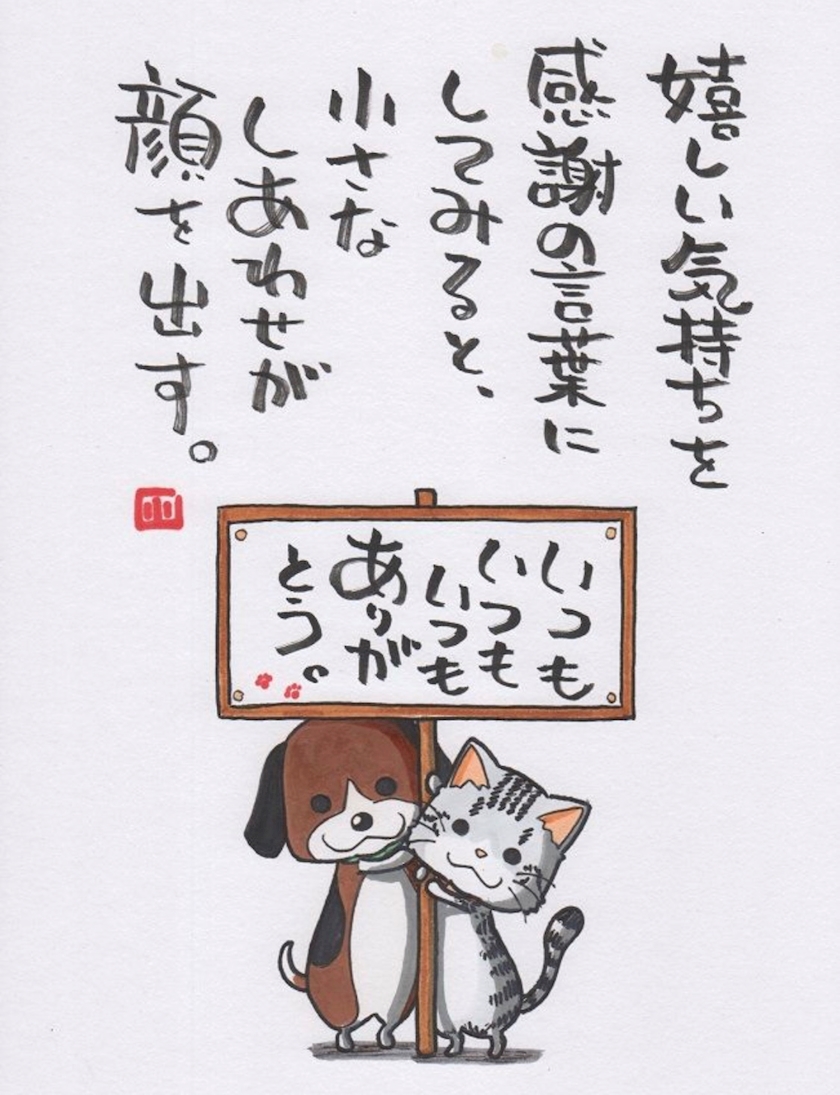 嬉しい気持ちを
感謝の言葉に
してみると、
小さな
しあわせが
顔を出す。
いつも
いつも
いつも
ありが
とう。